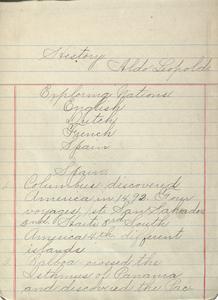 History
Aldo Leopold
Exploring Nations
English
Dutch
French
Spain
Spain
1. Columbus discovered
America in 1492. Four
voyages, 1st San Salvador
2nd Haiti 3rd South
America 4th different
islands
2. Balboa crossed the
Isthmus of Panama
and discovered the Pac